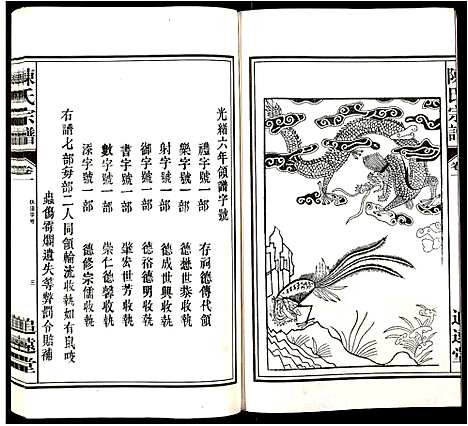 陳氏宗譜
卷
追遠堂
光緒六年領譜字號
禮字號一部 存祠德傳代領
樂字號一部 德懋世葵收執
射字號一部 德成世興收執
御字號一部 德裕德明收執
書字號一部 肇宏世芳收執
數字號一部 崇仁德馨收執
添字號一部 德修宗儒收執
右譜七部每部二人同領輪流收執如有鼠咬
蟲傷霉爛遺失等弊罰合賠補
陳氏宗譜
卷
領譜字號
三
追遠堂